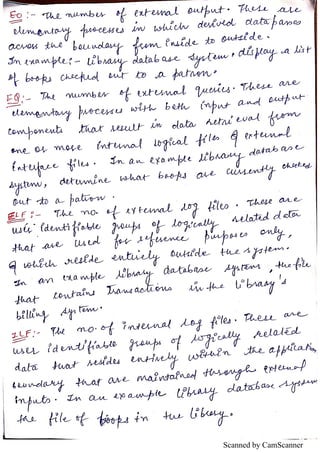 EO :- The number of external output. These are
elementary processes in which derived data passes
across the boundary from inside to outside.
In example:- library database system, display a list
of books checked out to a patron.
EQ :- The number of external queries. These are
elementary processes with both input and output
components that result in data retrieval from
one or more internal logical files & external
interface files. In an example library database
system, determine what books are currently checked
out to a patron.
ELF :- The no. of external log files. These are
user identifiable groups of logically related data
that are used for reference purposes only,
& which reside entirely outside the system.
In an example library database system, the file
that contains transactions in the library's
billing system.
ILF :- The no of internal log files. These are
user identifiable groups of logically related
data that resides entirely within the application
boundary that are maintained through external
inputs. In an example library database system
the file of books in the library.
Scanned by CamScanner